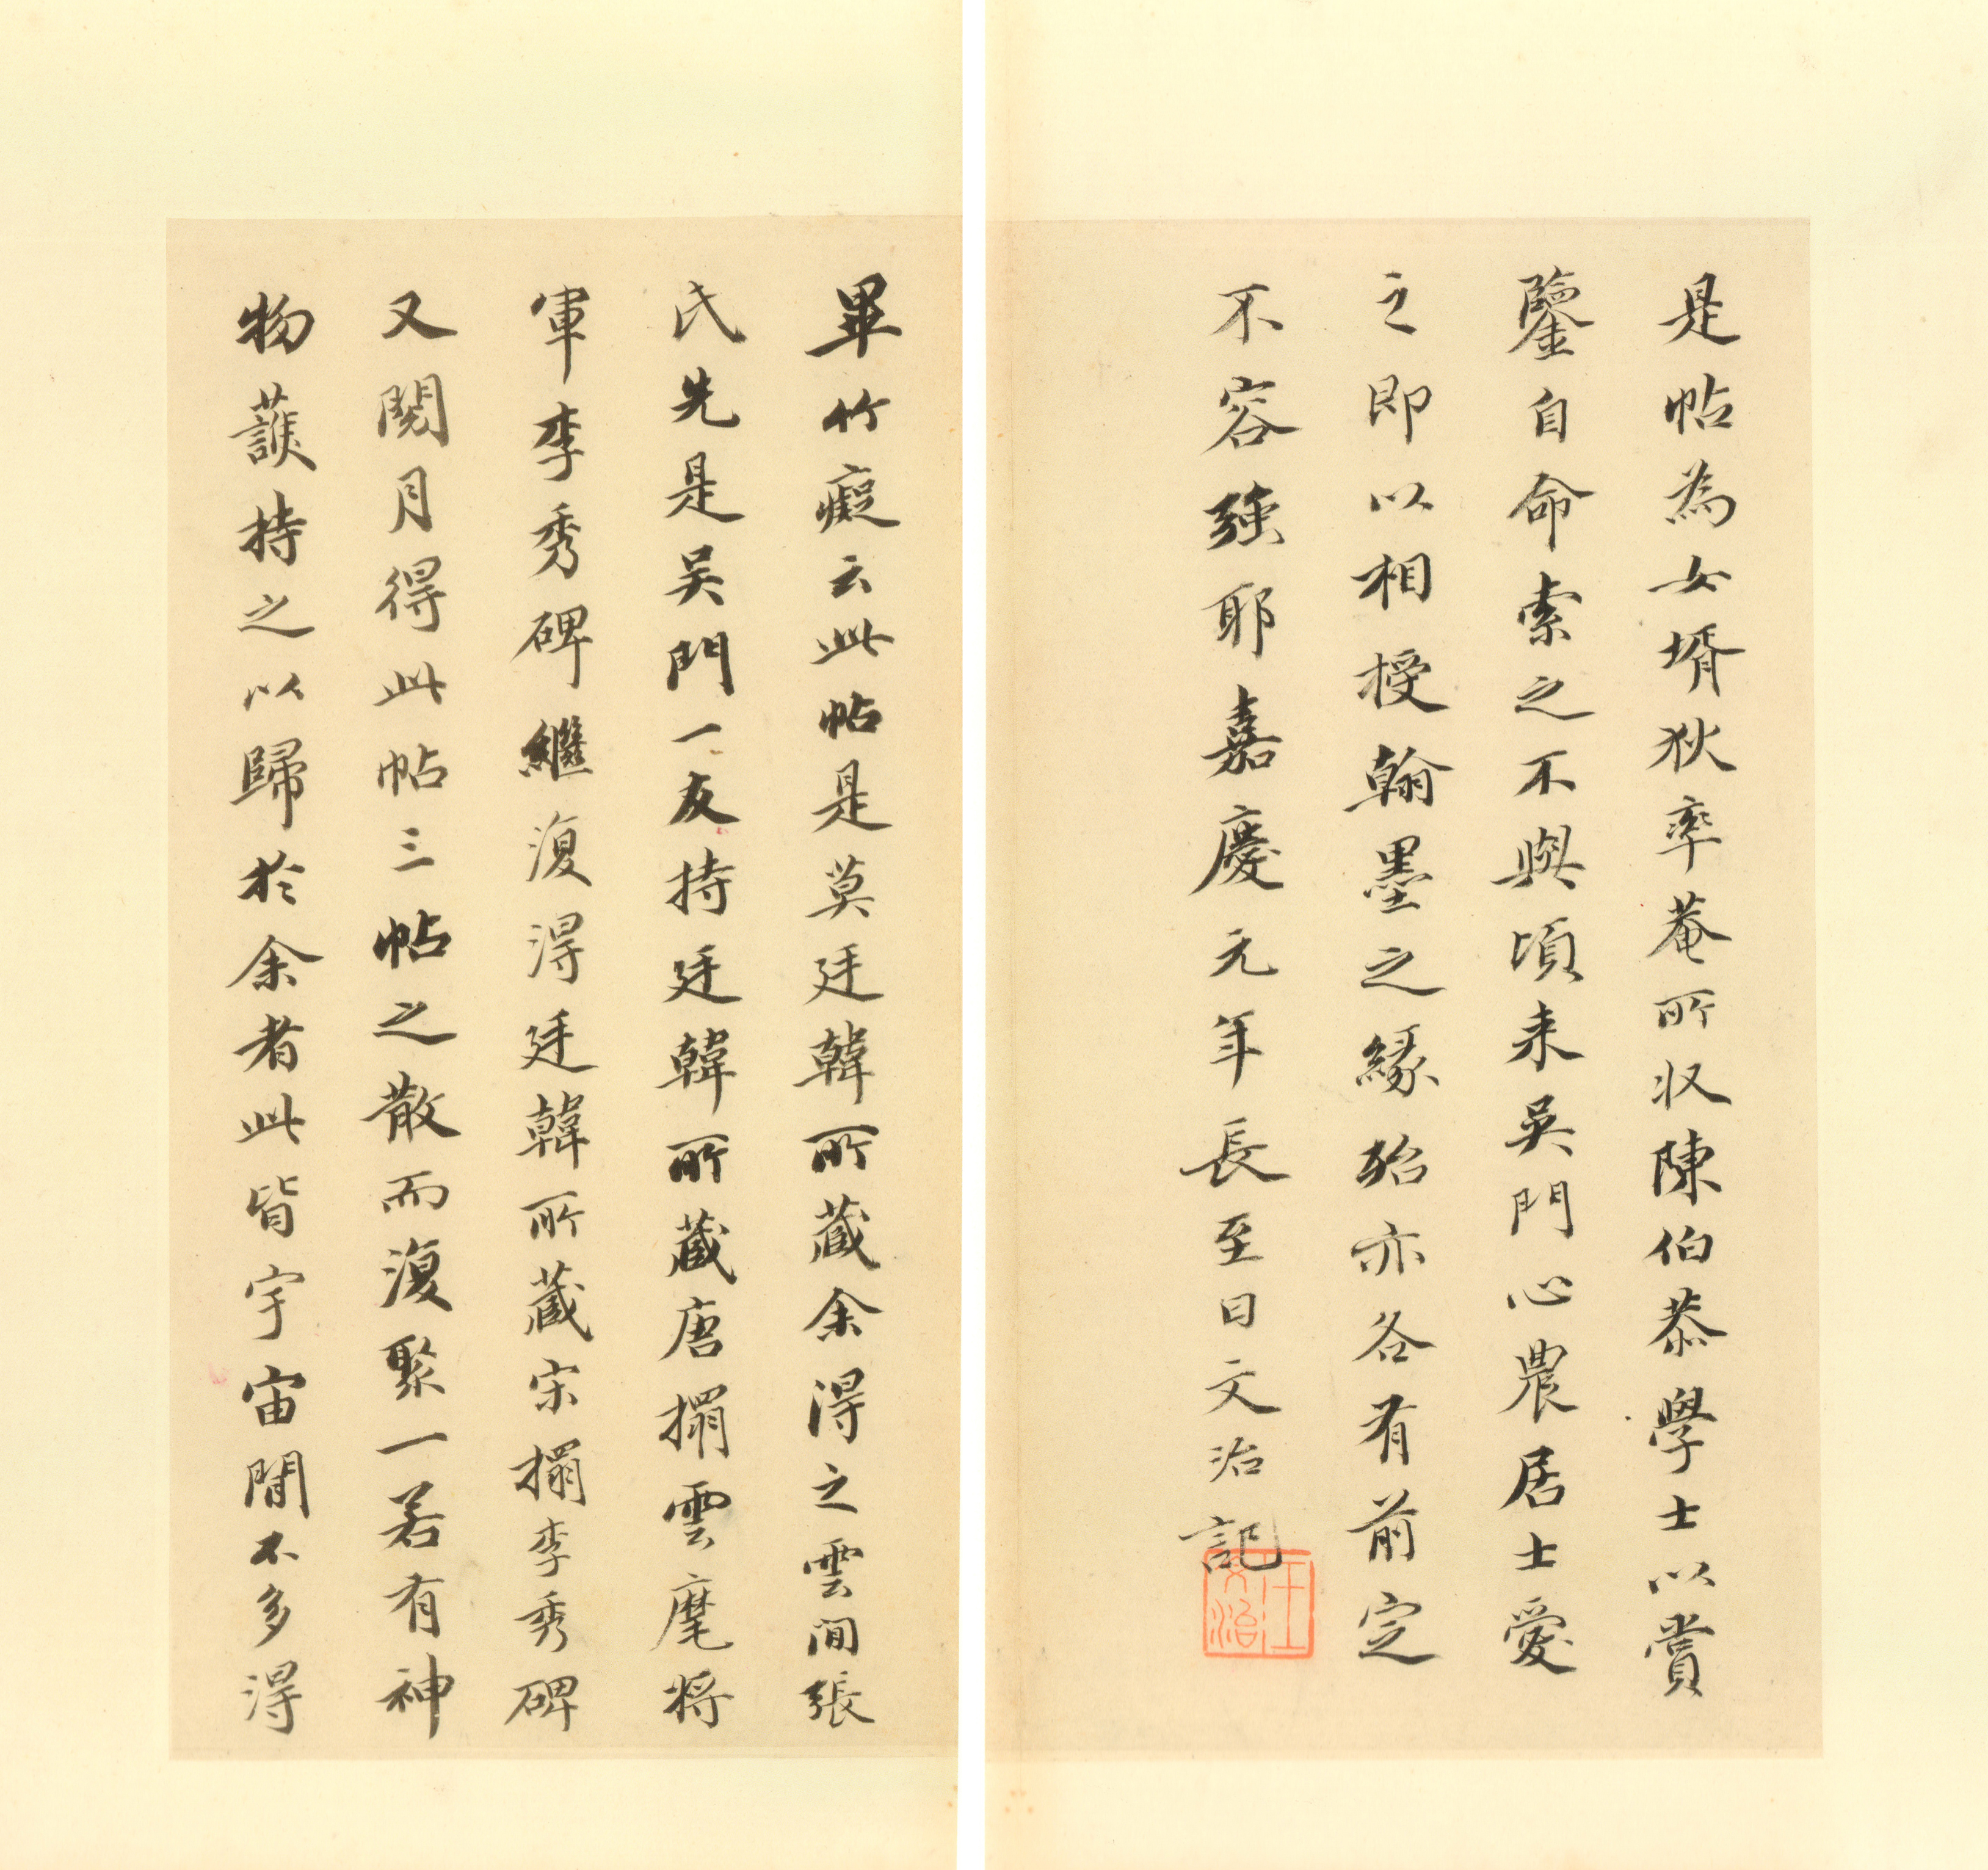 是帖為女壻狄率菴所収陳伯恭學士以賞
鑒自命索之不與頃来吴門心農居士愛
之即以相授翰墨之緣殆亦各有前定
不容强耶嘉慶元年長至日文治記
王文治
畢竹癡云此帖是莫廷韓所藏余得之雲間張
氏先是吴門一友持廷韓所藏唐搨雲麾将
軍李秀碑繼復得廷韓所藏宋搨李秀碑
又閱月得此帖三帖之散而復聚一若有神
物護持之以歸於余者此皆宇宙間不多得